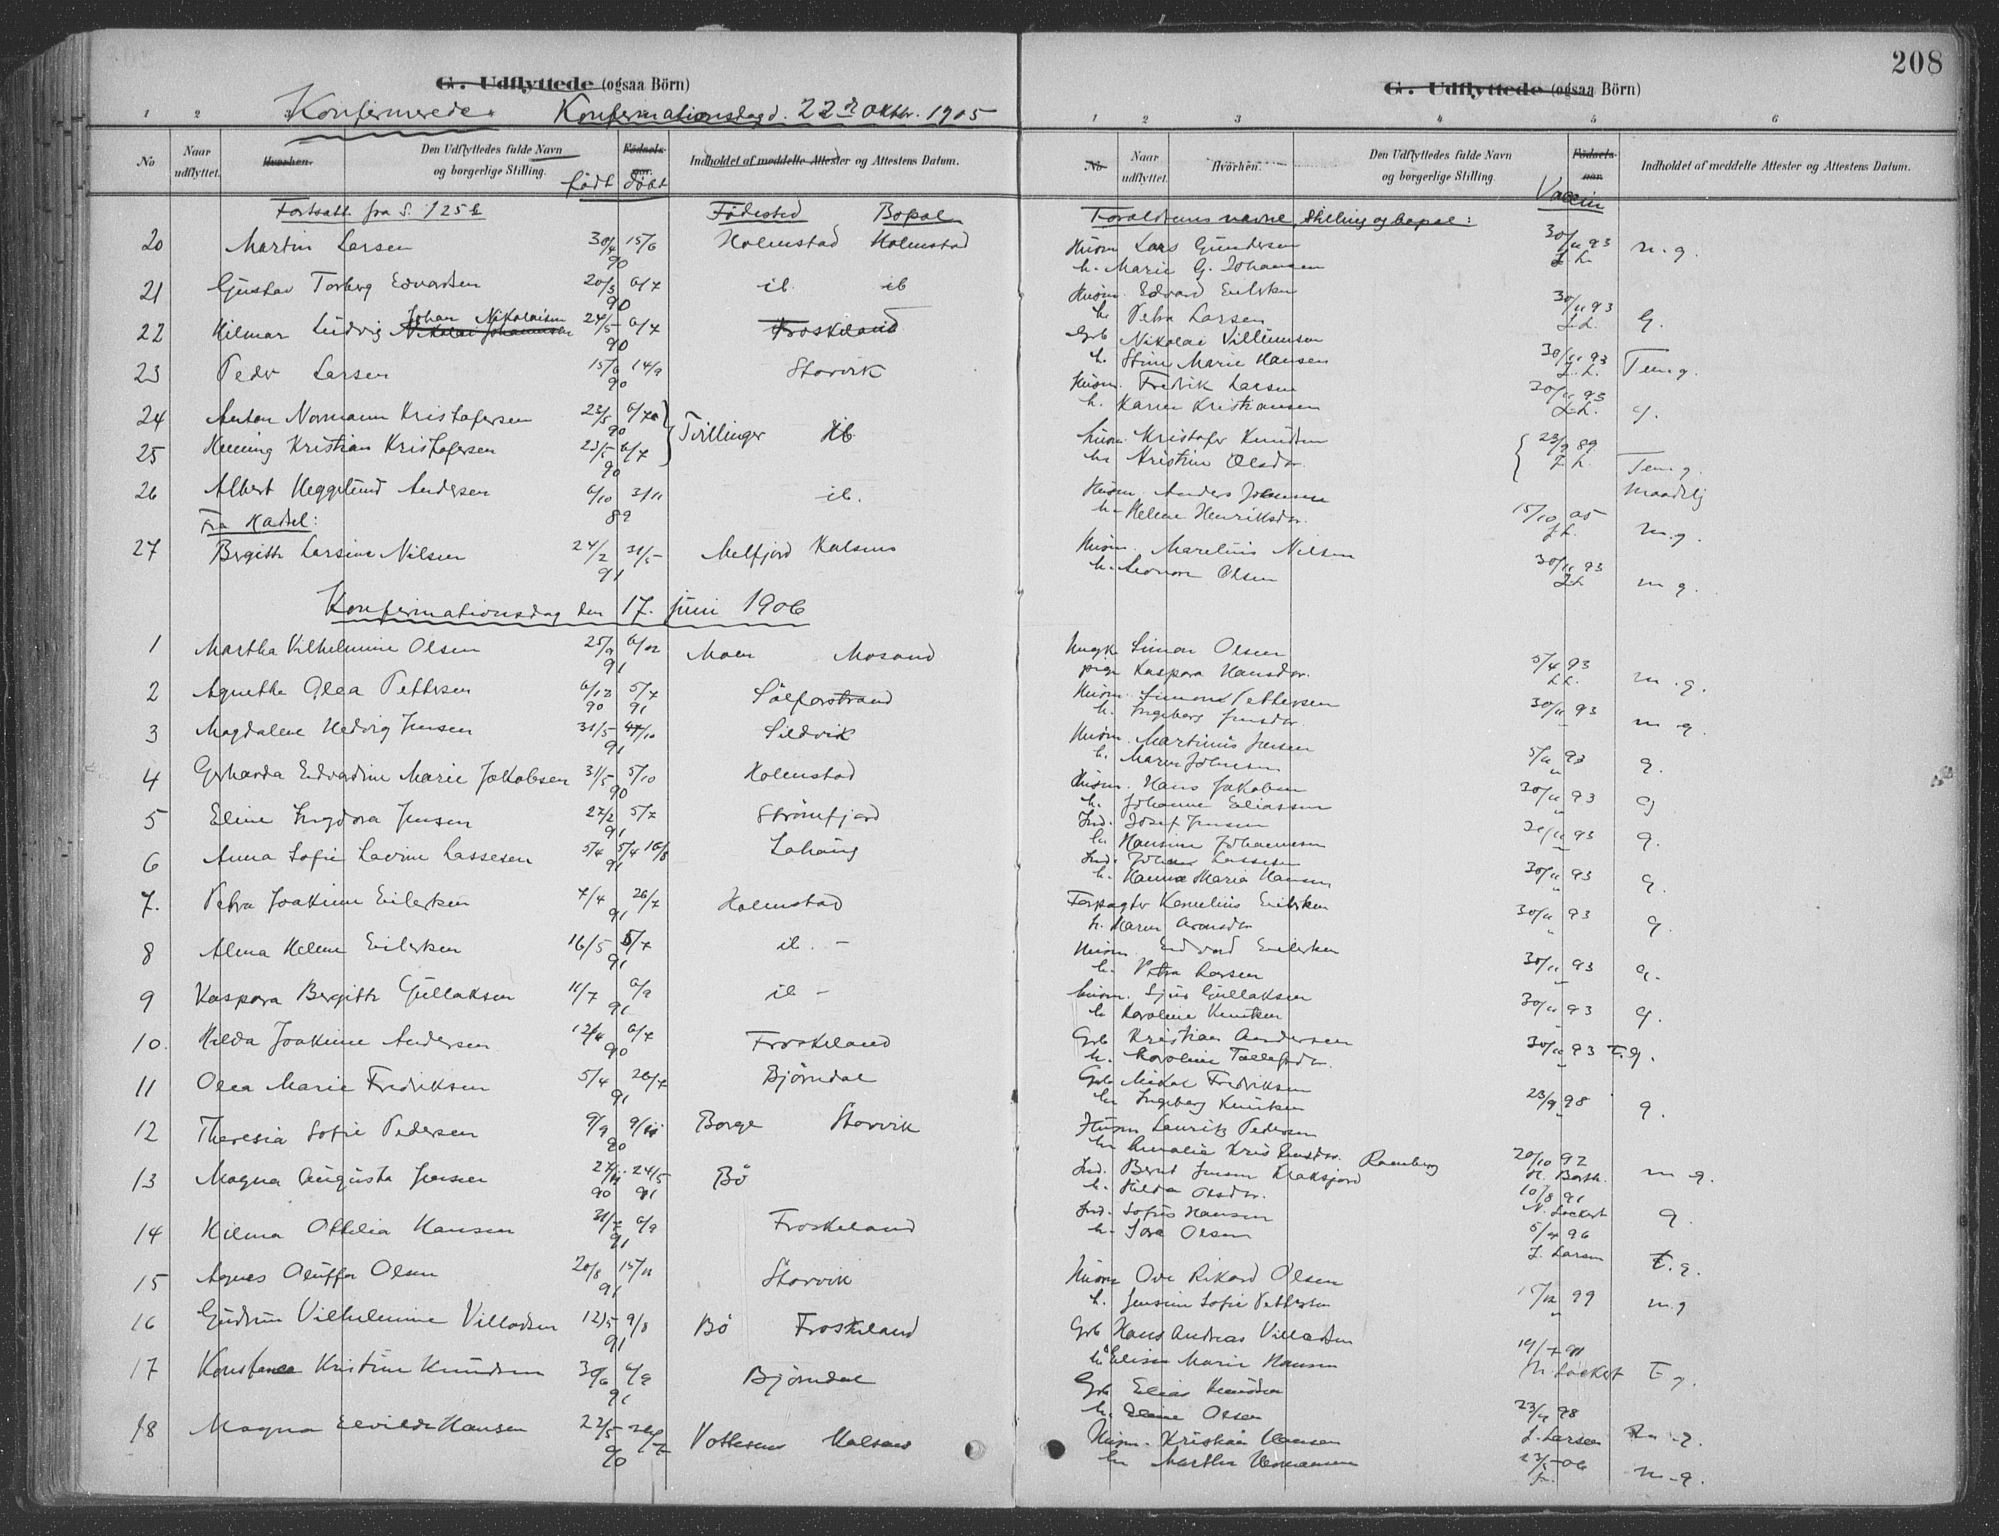 208
G. Udflyttede (ogsaa Börn)
"Konfirmerede" Konfirmationsdag d. 22de Oktbr. 1905
1 2
No Naar udflyttet. Hvorhen. Den Udflyttedes fulde Navn og borgerlige Stilling. Födsels-aar. Indholdet af meddelte Attester og Attestens Datum.
født døbt
Fortsatt fra S. 125
Fødested Bopæl
20 Martin Larsen 30/4 90 15/6 Holmstad Holmstad
21 Gustav Torberg Edvardsen 20/3 90 6/7 ib ib
22 Hilmar Ludvig Nikolai Johannsen Johan Nikolaisen 24/5 90 6/7 Froskeland
23 Peder Larsen 15/6 90 14/9 Storvik
24 Anton Normann Kristofersen 23/5 90 6/7 Tvillinger ib
25 Henning Kristian Kristofersen 23/5 90 6/7
26 Albert Heggelund Andersen 6/10 89 3/11 ib.
Fra Hadsel:
27 Bergitte Larsine Nilsen 24/2 91 31/5 Melfjord Kalsnes
Konfirmationsdag den 17. juni 1906
1 Martha Vilhelmine Olsen 25/9 91 6/12 Moen Mosand
2 Agnethe Olea Pettersen 6/12 90 5/7 91 Sølferstrand
3 Magdalene Hedvig Jensen 31/5 91 /10 Sildvik
4 Gerharda Edvardine Marie Jakobsen 31/5 90 5/10 Holmstad
5 Eline Ingdora Jensen 27/2 91 5/7 Strømfjord
6 Anna Sofie Lavine Lassesen 5/4 91 5/4 16/8 Lahaug
7. Petra Joakime Eilertsen 7/4 91 26/7 Holmstad
8 Alma Helene Eilertsen 16/5 91 5/7 ib. -
9 Kaspara Bergitte Gullaksen 11/7 91 6/9 ib -
10. Hilda Joakime Andersen 12/4 90 6/7 Froskeland
11 Olea Marie Fredriksen 5/4 91 26/7 Bjørndal
12 Theresia Sofie Pedersen 9/9 90 9/11 Borge Storvik
13 Magna Augusta Jensen 27/11 90 24/5 91 Bø
14 Hilma Ottelia Hansen 31/7 91 6/9 Froskeland
15 Agnes Oluffa Olsen 20/8 91 15/11 Storvik
16 Gudrun Vilhelmine Villadsen 12/5 91 9/8 Bø Froskeland
17 Konstanca Kristine Knudsen 30/6 91 6/9 Bjørndal
18 Magna Elvilde Hansen 22/5 90 Vottesnes Kalsnes
G. Udflyttede (ogsaa Börn)
1 2 3 4 5 6
No Naar udflyttet. Hvorhen. Den Udflyttedes fulde Navn og borgerlige Stilling. Födsels-aar. Indholdet af meddelte Attester og Attestens Datum.
Vaccin
Forældrenes navne, Stilling og bopæl:
Husm Lars Gundersen 30/11 93 m.g.
h. Marie G. Johansen L.L.
Husm. Edvard Eilertsen 30/11 93
h. Petra Larsen L.L. G.
Grb Nikolai Villumsen
h. Stine Marie Hansen 30/11 93 Tem g.
Husm. Fredrik Larsen L.L.
h. Karen Kristiansen 30/11 93 L.L. g.
husm. Kristofer Knudsen 23/9 89
h. Kristine Olsdr. L.L. Tem g.
Husm Anders Johansen maadelig
h. Helene Henriksdr. 15/10 05
Husm. Marelius Nilsen L.L. m.g.
h. Leonore Olsen 30/11 93 L.L. m g.
Ungk Simon Olsen
pige Kaspara Hansdr. 5/4 93 L.L. m.g.
Husm. Simon Pettersen
h. Ingeberg Jensdr. 30/11 93 m g.
Husm. Martinus Jensen
h. Maren Johnsen 5/11 93 g.
Husm. Hans Jakobsen
h. Johanna Eliassen 30/11 93 g
Ind. Josef Jensen
h. Hansine Johannesen 30/11 93 g.
Ind. Johan Lassesen
h. Hanna Maria Hansen 30/11 93 g.
Forpagter Kornelius Eilertsen
h. Maren Aronsdr 30/11 93 g.
Husm. Edvard Eilertsen
h. Petra Larsen 30/11 93 g.
husm. Sjur Gullaksen
h. Karoline Knutsen 30/11 93 g.
Grb Kristian Andersen
h. Karoline Tollefsdr. 30/11 93 T.g.
Grb Mikal Fredriksen
h. Ingeberg Knutsen 23/9 98 g.
Husm Lauritz Pedersen
h. Amalie Kristensdr. Ramberg 20/10 92 m g.
Ind. Bernt Jensen Klaksjord H. Barth.
h. Hilda Olsdr. 10/8 91
Ind. Sofus Hansen N. Lockert g.
h. Tora Olsen 5/4 96
L. Larsen T.g.
Husm Ove Rikard Olsen
h. Jensine Sofie Pettersen 15/12 99 m g
Grb Hans Andreas Villadsen
h. Elisa Marie Hansen 19/7 91
Grb Elias Knudsen N. Lockert T g.
h. Eline Olsen 23/4 98
Husm. Kristian Hansen L. Larsen
h. Marthe Hermansen 23/5-06 m-g.